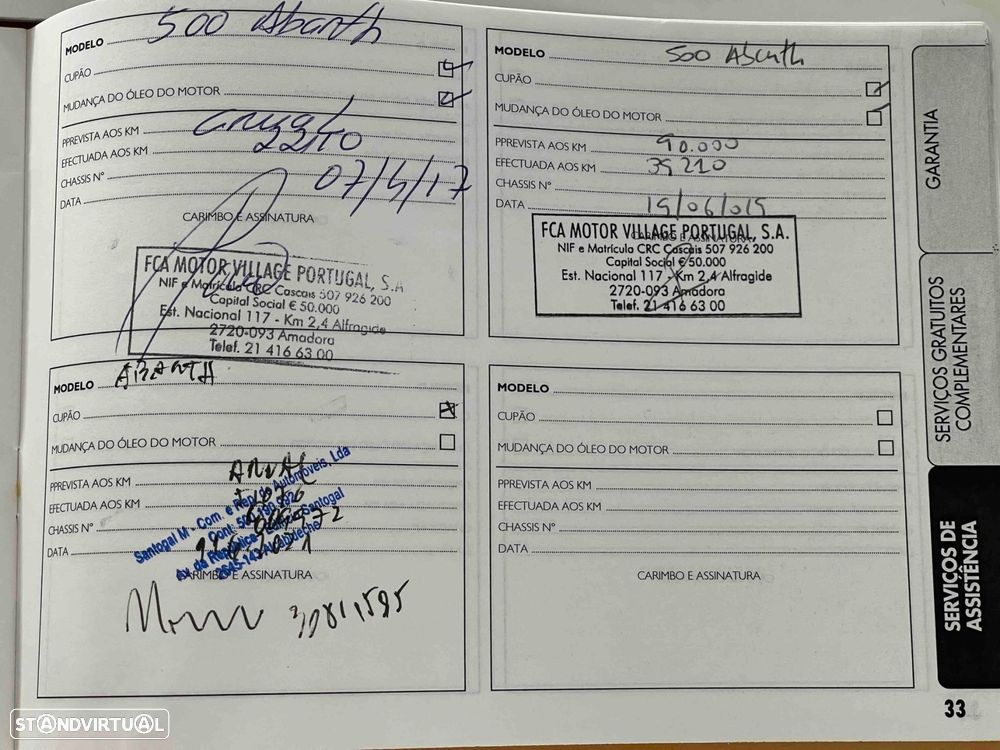 MODELO 500 Abarth
CUPÃO
MUDANÇA DO ÓLEO DO MOTOR
PPREVISTA AOS KM
EFECTUADA AOS KM
CHASSIS Nº
DATA 07/4/17
CARIMBO E ASSINATURA
FCA MOTOR VILLAGE PORTUGAL, S.A
NIF e Matrícula CRC Cascais 507 926 200
Capital Social € 50.000
Est. Nacional 117 - Km 2,4 Alfragide
2720-093 Amadora
Telef. 21 416 63 00
MODELO 500 Abarth
CUPÃO
MUDANÇA DO ÓLEO DO MOTOR
PPREVISTA AOS KM 90.000
EFECTUADA AOS KM 39210
CHASSIS Nº
DATA
CARIMBO E ASSINATURA
FCA MOTOR VILLAGE PORTUGAL, S.A.
NIF e Matrícula CRC Cascais 507 926 200
Capital Social € 50.000
Est. Nacional 117 - Km 2,4 Alfragide
2720-093 Amadora
Telef. 21 416 63 00
MODELO ABARTH
CUPÃO
MUDANÇA DO ÓLEO DO MOTOR
PPREVISTA AOS KM ANUAL
EFECTUADA AOS KM
CHASSIS Nº
DATA
CARIMBO E ASSINATURA
Santogal M - Com. e Rep. de Automóveis, Lda
Av. da República Edifício Santogal
2645-143 Alcabideche
MODELO
CUPÃO
MUDANÇA DO ÓLEO DO MOTOR
PPREVISTA AOS KM
EFECTUADA AOS KM
CHASSIS Nº
DATA
CARIMBO E ASSINATURA
GARANTIA
SERVIÇOS GRATUITOS
COMPLEMENTARES
SERVIÇOS DE
ASSISTÊNCIA
33
STANDVIRTUAL